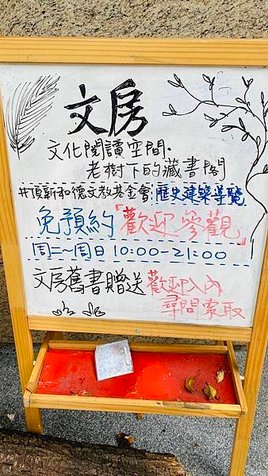 文房
文化閱讀空間·
老樹下的藏書閣
#頂新和德文教基金會 歷史建築導覽
免預約「歡迎參觀」
周二～周日 10:00-21:00
文房舊書贈送 歡迎入內
尋問索取